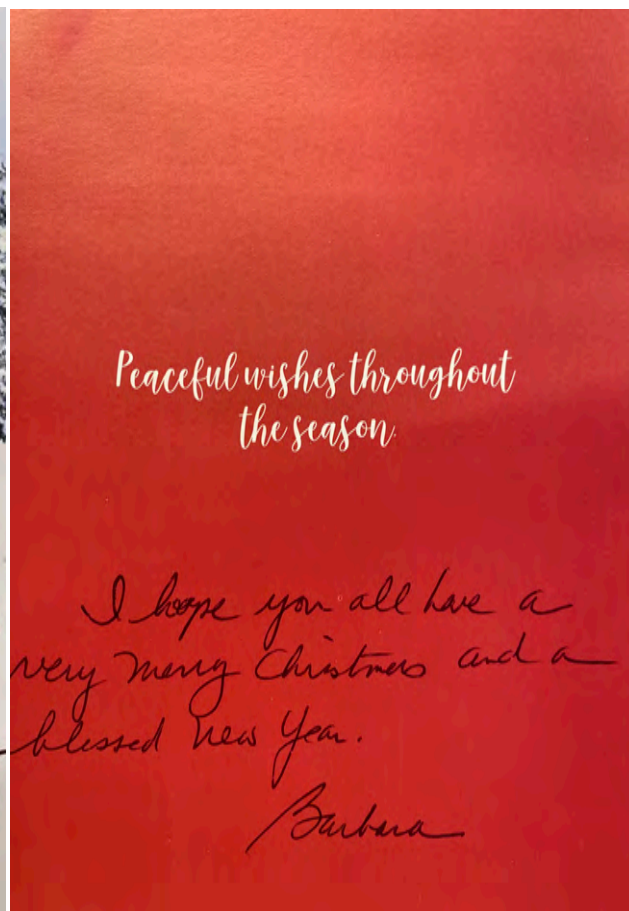 Peaceful wishes throughout
the season.
I hope you all have a
very merry Christmas and a
blessed New Year.
Barbara